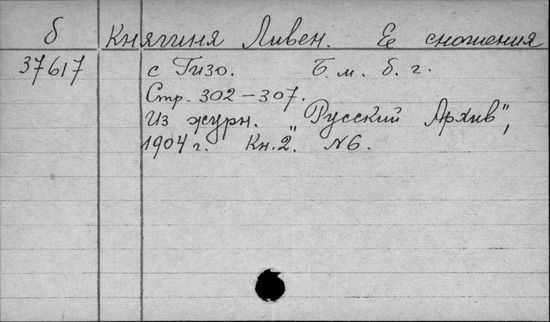 б Княгиня Ливен. Ее сношения
37617 с Гизо. Б. м. б. г.
Стр. 302-307.
Из журн. "Русский Архив",
1904 г. Кн. 2. N6.